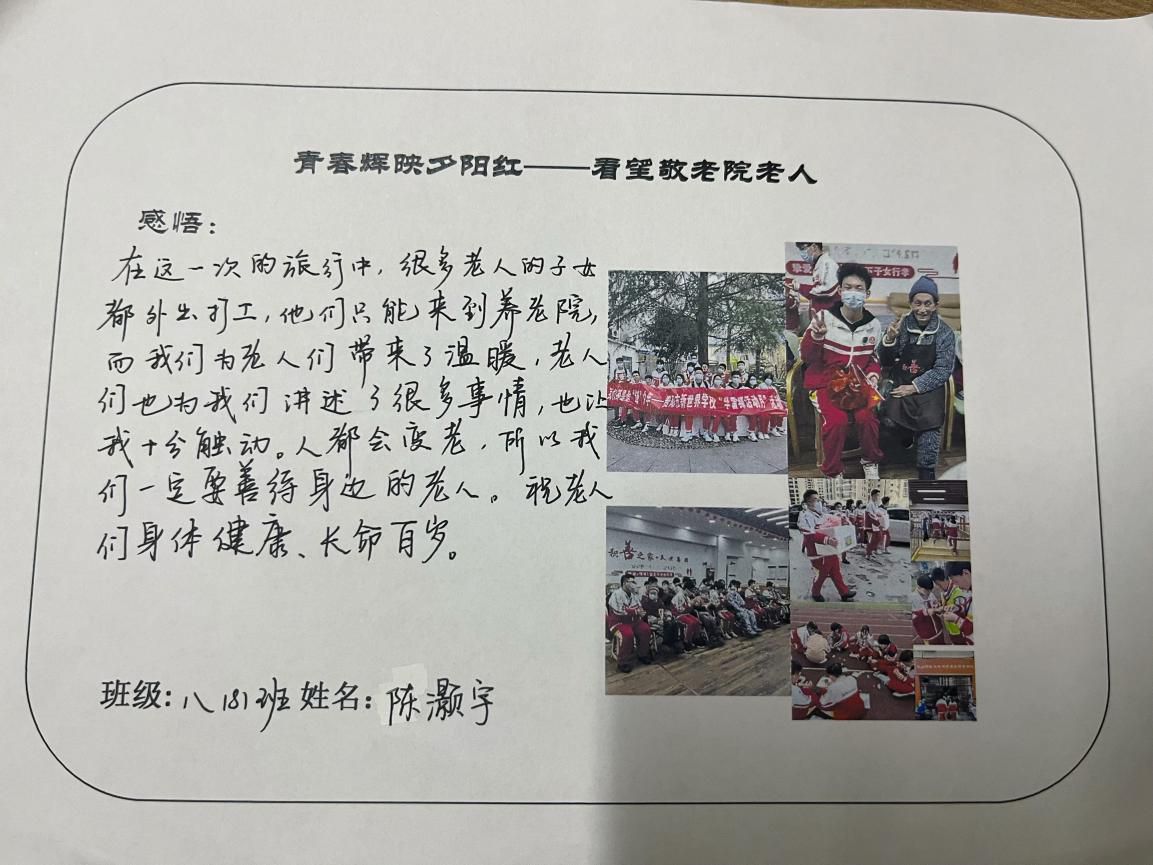 青春辉映夕阳红——看望敬老院老人
感悟：
在这一次的旅行中，很多老人的子女
都外出打工，他们只能来到养老院，
而我们为老人们带来了温暖，老人
们也为我们讲述了很多事情，也让
我十分触动。人都会变老，所以我
们一定要善待身边的老人。祝老人
们身体健康、长命百岁。
班级：八181班 姓名：陈灏宇
新世界学校
善之家
子女行孝
善